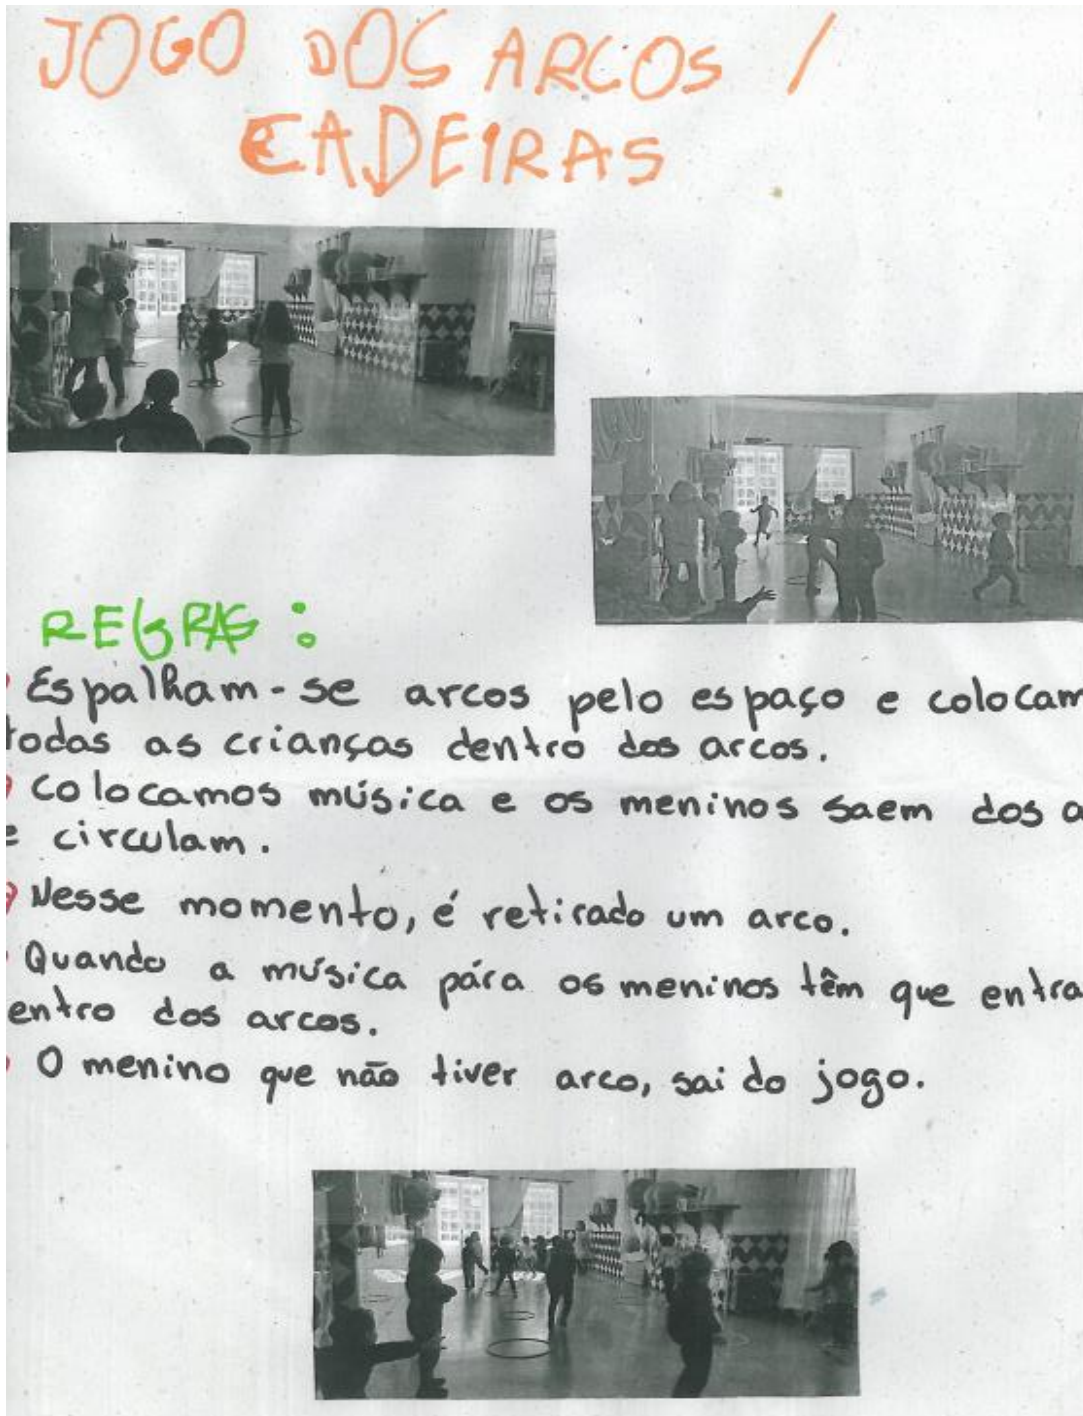 JOGO DOS ARCOS /
CADEIRAS
REGRAS:
Espalham-se arcos pelo espaço e colocam
todas as crianças dentro dos arcos.
Colocamos música e os meninos saem dos a
e circulam.
Nesse momento, é retirado um arco.
Quando a música pára os meninos têm que entra
entro dos arcos.
O menino que não tiver arco, sai do jogo.